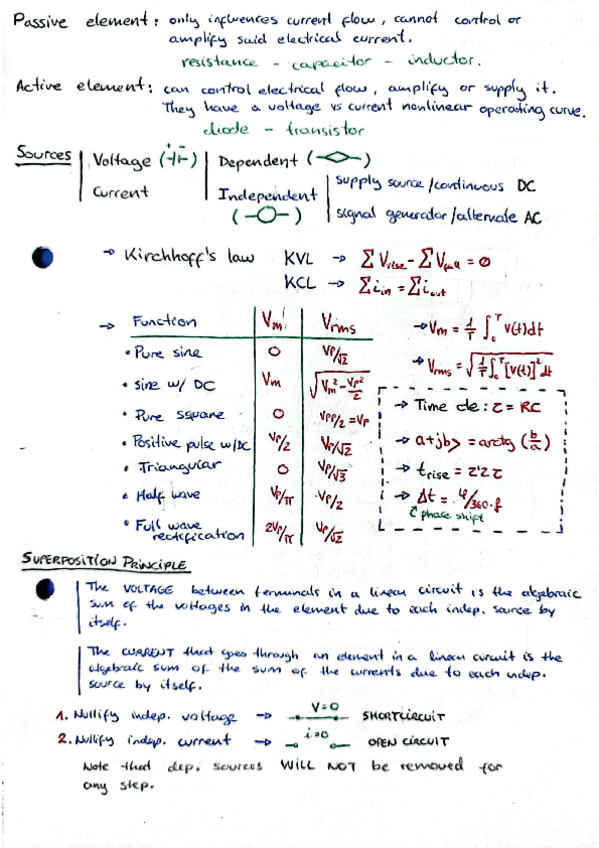 Passive element: only influences current flow, cannot control or
amplify said electrical current.
resistance - capacitor - inductor.
Active element: can control electrical flow, amplify or supply it.
They have a voltage vs current nonlinear operating curve.
diode - transistor
Sources | Voltage (+ -) | Dependent ( )
Current | Independent ( ) | supply source/continuous DC
signal generator/alternate AC
→ Kirchhoff's law KVL → ΣVrise - ΣVfall = 0
KCL → Σiin = Σiout
→ Function | Vm | Vrms
• Pure sine | 0 | Vp/√2
• Sine w/ DC | Vm | √(Vm² - Vp²/2)
• Pure square | 0 | Vpp/2 = Vp
• Positive pulse w/DC | Vp/2 | Vp/√2
• Triangular | 0 | Vp/√3
• Half wave | Vp/π | Vp/2
• Full wave rectification | 2Vp/π | Vp/√2
→ Vm = 1/T ∫₀ᵀ v(t)dt
→ Vrms = √(1/T ∫₀ᵀ [v(t)]² dt)
→ Time de: τ = RC
→ a+jb> = arctg (b/a)
→ trise = 2'2 τ
→ Δt = φ/360·f
phase shift
SUPERPOSITION PRINCIPLE
The VOLTAGE between terminals in a linear circuit is the algebraic
sum of the voltages in the element due to each indep. source by
itself.
The CURRENT that goes through an element in a linear circuit is the
algebraic sum of the sum of the currents due to each indep.
source by itself.
1. Nullify indep. voltage → V=0 SHORTCIRCUIT
2. Nullify indep. current → i=0 OPEN CIRCUIT
Note that dep. sources WILL NOT be removed for
any step.